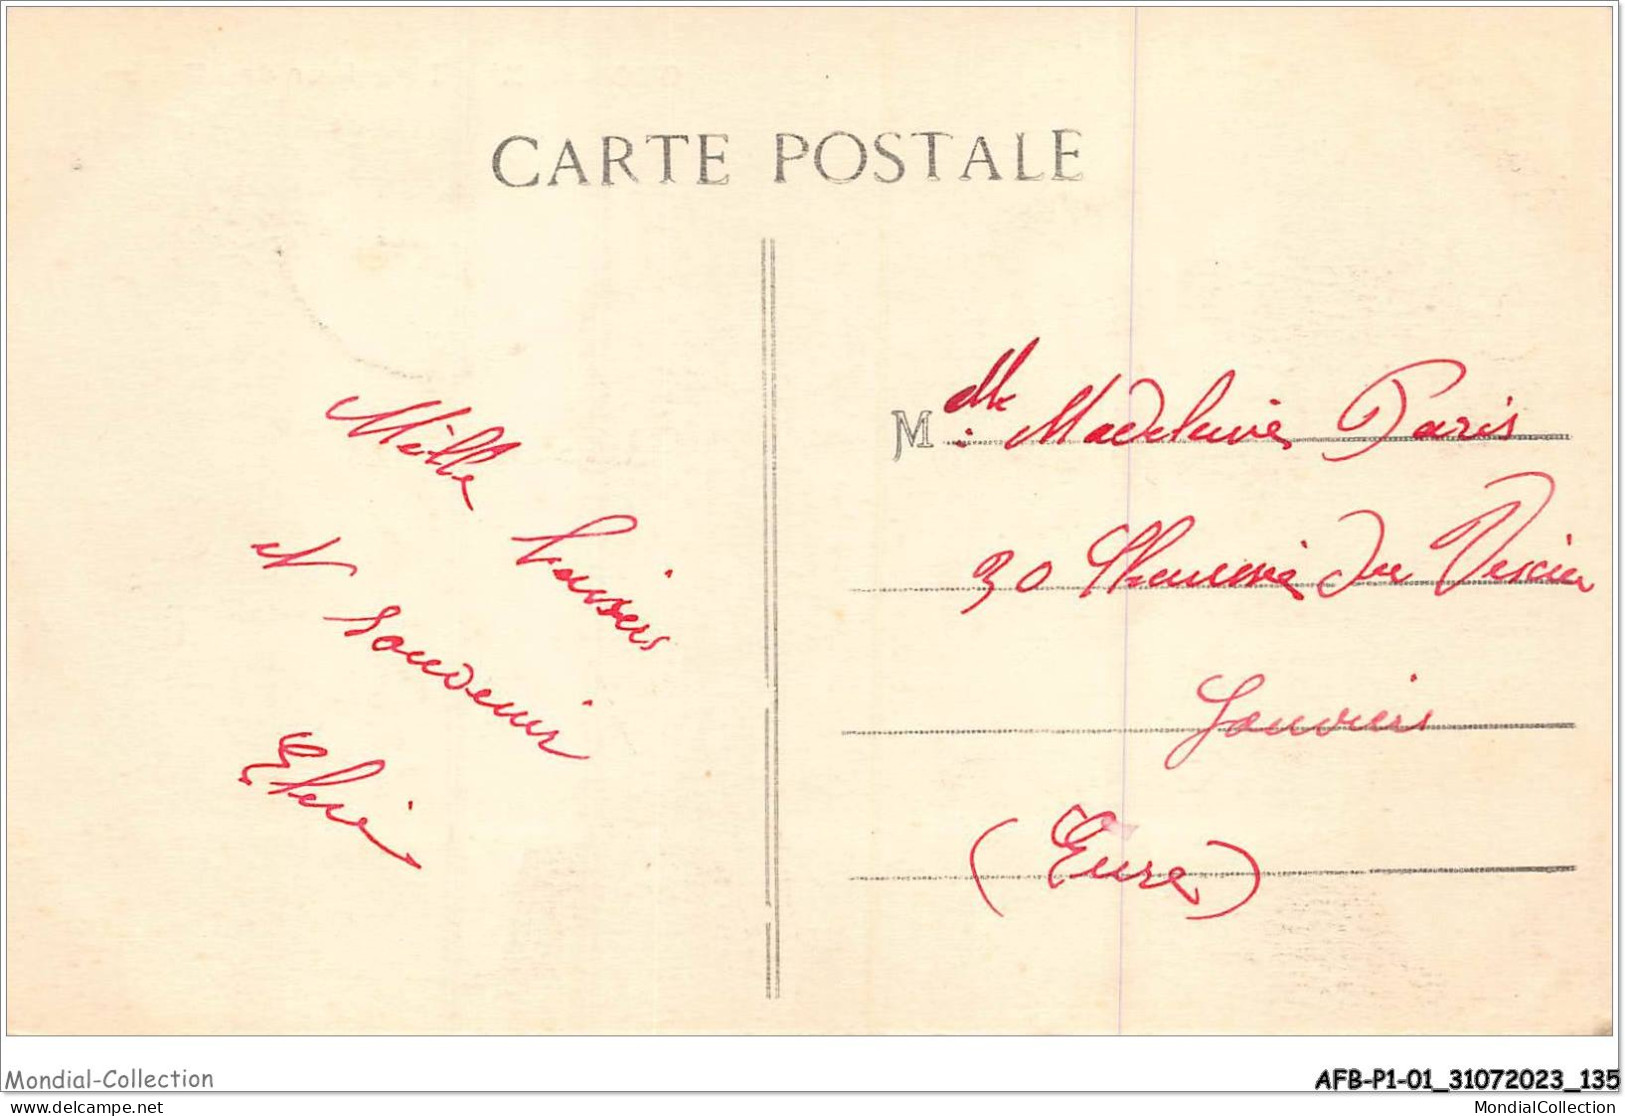 CARTE POSTALE
Mille baisers
et souvenir
M Mlle Madeleine Paris
30 Chaussée du Vexin
Louviers
(Eure)
Mondial-Collection
AFB-P1-01_31072023_135
www.delcampe.net
MondialCollection